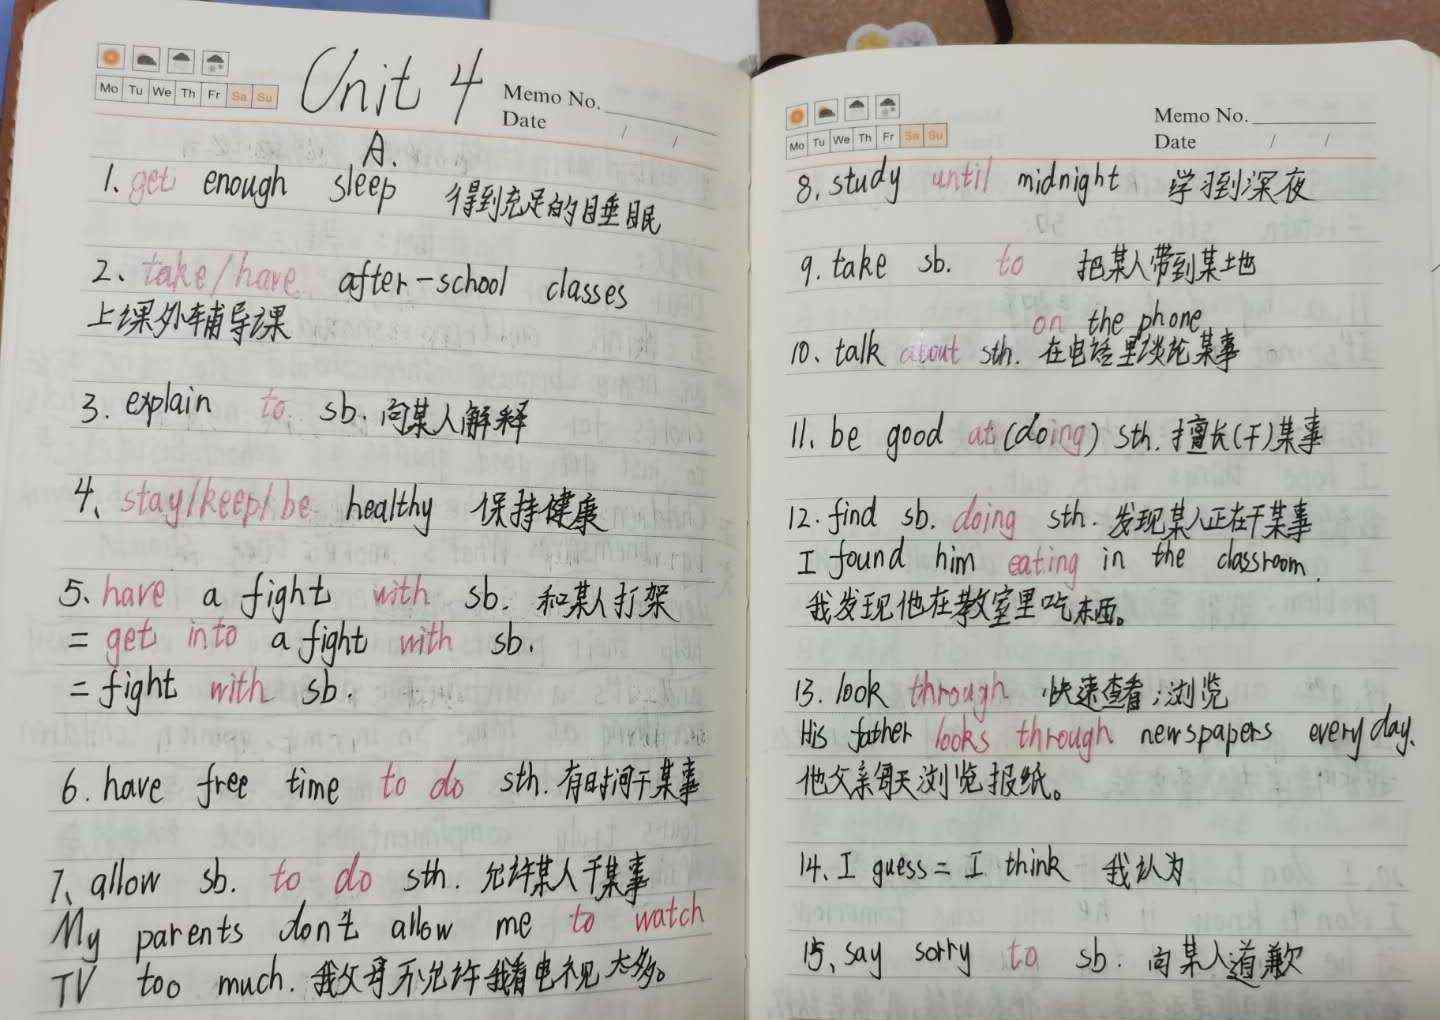 Mo Tu We Th Fr Sa Su
Unit 4
Memo No.
Date / /
A.
1. get enough sleep 得到充足的睡眠
2、take/have after-school classes
上课外辅导课
3. explain to sb. 向某人解释
4、stay/keep/be healthy 保持健康
5、have a fight with sb. 和某人打架
= get into a fight with sb.
= fight with sb.
6. have free time to do sth. 有时间干某事
7、allow sb. to do sth. 允许某人干某事
My parents don't allow me to watch
TV too much. 我父母不允许我看电视太多。
Mo Tu We Th Fr Sa Su
Memo No.
Date / /
8. study until midnight 学习到深夜
9. take sb. to 把某人带到某地
on the phone
10、talk about sth. 在电话里谈论某事
11、be good at (doing) sth. 擅长(干)某事
12. find sb. doing sth. 发现某人正在干某事
I found him eating in the classroom.
我发现他在教室里吃东西。
13. look through 快速查看;浏览
His father looks through newspapers every day.
他父亲每天浏览报纸。
14、I guess = I think 我认为
15、say sorry to sb. 向某人道歉